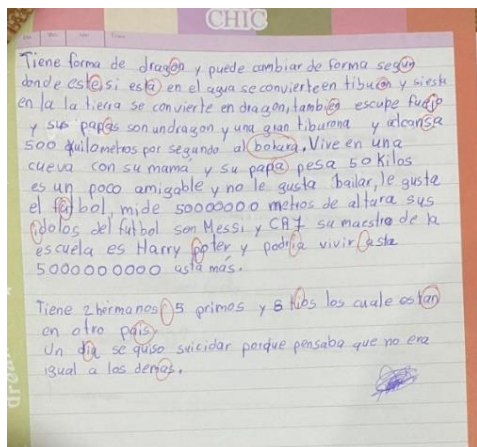 CHIC
Tiene forma de dragon y puede cambiar de forma segun
donde este, si esta en el agua se convierte en tiburon y si esta
en la la tierra se convierte en dragon, tambien escupe fuejo
y sus papas son un dragon y una gran tiburona y alcansa
500 quilometros por segundo al botara. Vive en una
cueva con su mamá y su papa pesa 50 kilos
es un poco amigable y no le gusta bailar, le gusta
el futbol, mide 50000000 metros de altara sus
idolos del futbol son Messi y CR7 su maestro de la
escuela es Harry poter y podria vivir asta
5000000000 asta más.
Tiene 2 hermanos 5 primos y 8 tios los cuale estan
en otro pais.
Un dia se quiso suicidar porque pensaba que no era
igual a los demas.